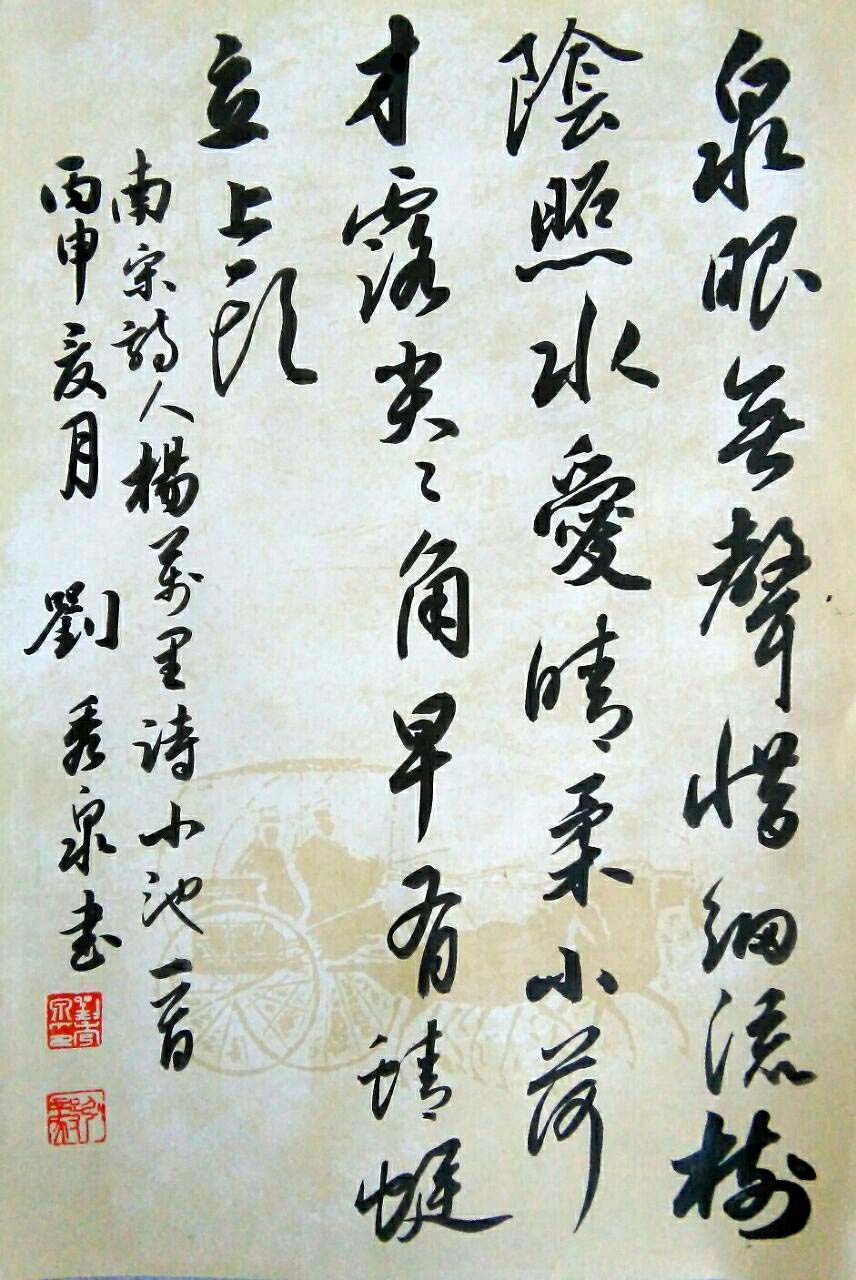 泉眼無聲惜細流樹
陰照水愛晴柔小荷
才露尖々角早有蜻蜓
立上頭
南宋詩人楊萬里诗小池一首
丙申夏月 劉秀泉书